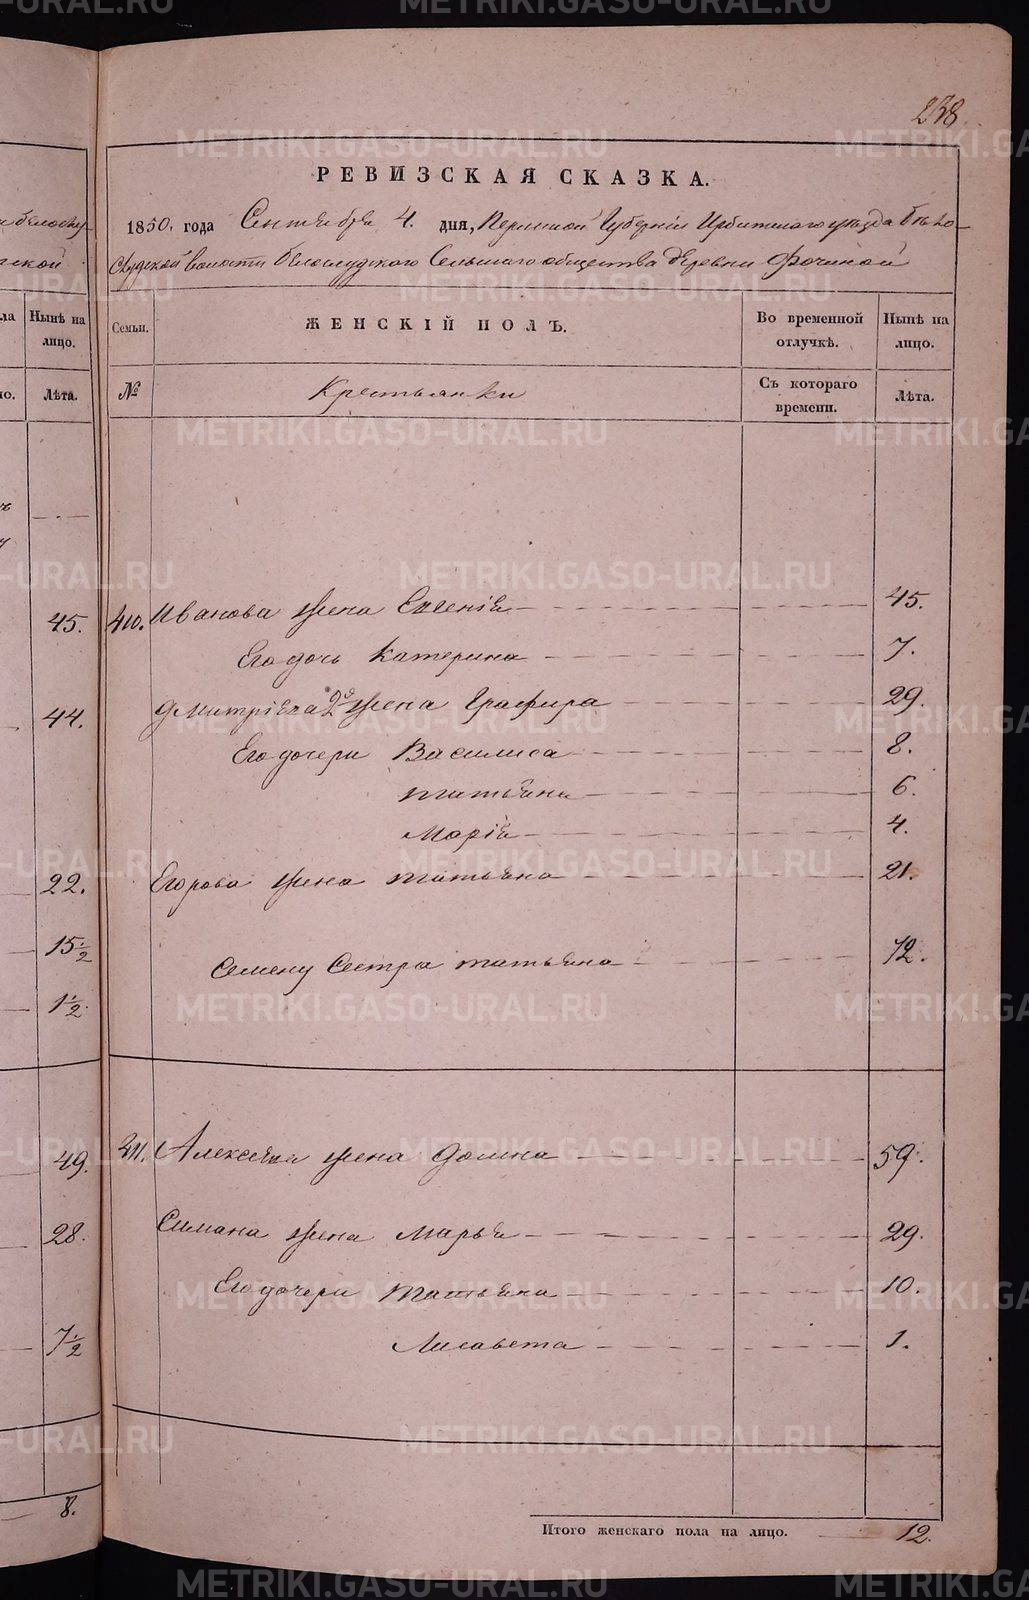 238
РЕВИЗСКАЯ СКАЗКА.
1850, года Сентября 4. дня, Пермской Губерніи Ирбитскаго уѣзда Бѣло-
слудской волости Бѣлослудскаго Сельскаго общества деревни Фочиной
Семьи. ЖЕНСКІЙ ПОЛЪ. Во временной отлучкѣ. Нынѣ на лицо.
№ Крестьянки Съ котораго времени. Лѣта.
410. Иванова жена Евгенія 45.
Его дочь Катерина 7.
Дмитріева 2я жена Графира 29.
Его дочери Василиса 8.
Татьяна 6.
Марія 4.
Егорова жена Татьяна 21.
Семену Сестра Татьяна 12.
411. Алексѣева жена Домна 59.
Симана жена Марья 29.
Его дочери Татьяна 10.
Лисавета 1.
Итого женскаго пола на лицо. 12.
Нынѣ на лицо.
Лѣта.
45.
44.
22.
15½
1½
49.
28.
7½
8.
METRIKI.GASO-URAL.RU